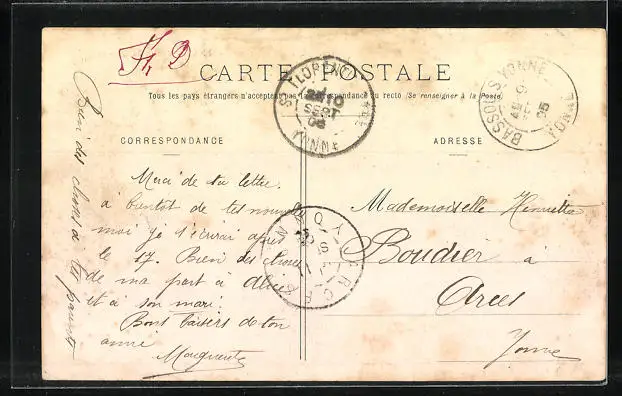 CARTE POSTALE
Tous les pays étrangers n'acceptent pas la correspondance au recto (Se renseigner à la Poste)
CORRESPONDANCE
ADRESSE
Merci de ta lettre.
à bientôt de tes nouvelles
moi je t'écrirai après
le 17. Bien des choses
de ma part à Alice
et à son mari.
Bons baisers de ton
amie
Marguerite
Bien des choses à tes parents
Mademoiselle Henriette
Boudier à
Arces
Yonne
ST FLORENTIN
10
SEPT
05
YONNE
YONNE
05